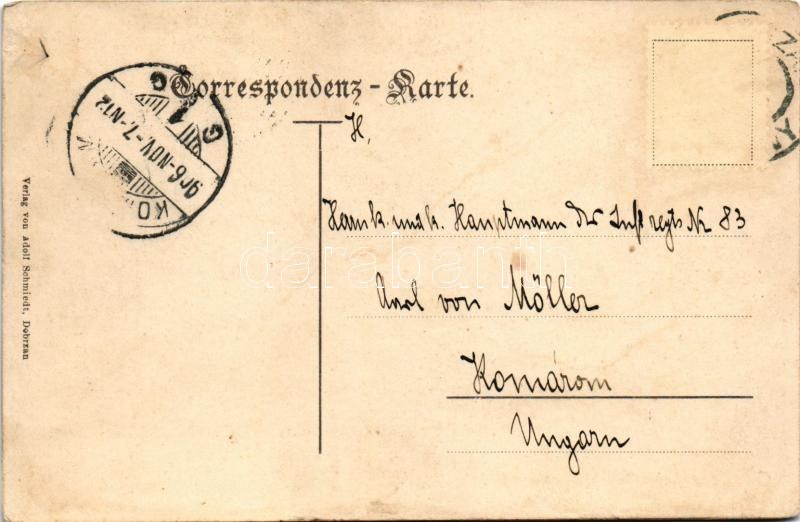 Correspondenz-Karte.
H,
Herrn k. und k. Hauptmann des Inf regts Nr 83
Karl von Möller
Komárom
Ungarn
906-NOV.-7.-N12
KO
G
1
Verlag von Adolf Schmiedt, Dobrzan
darabanth